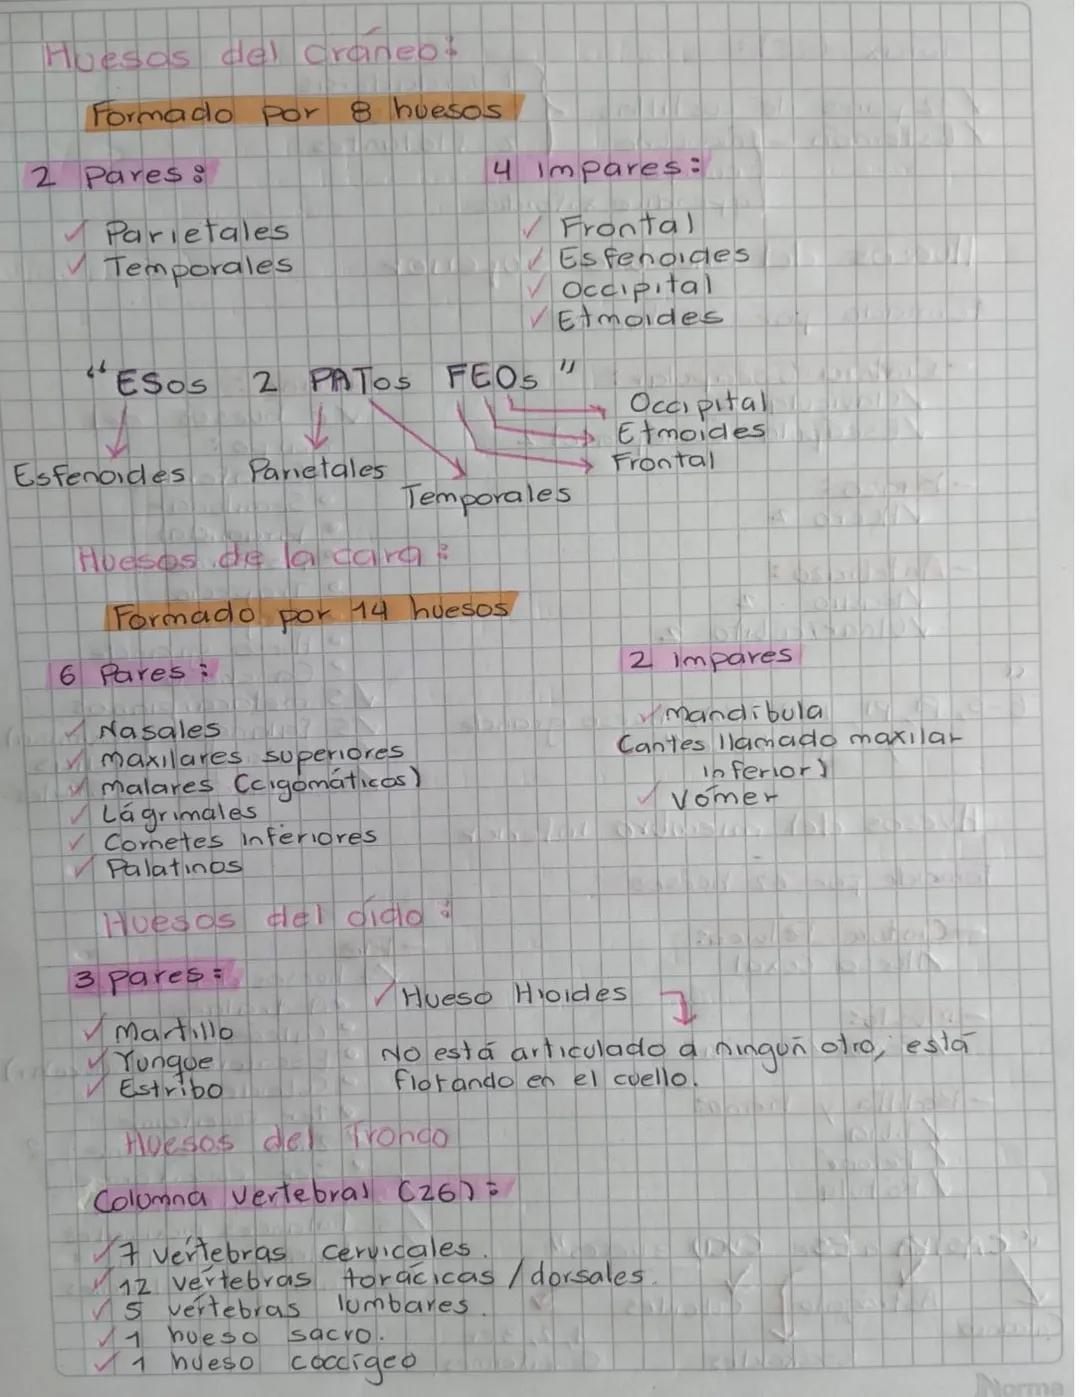 Huesos del cráneo:
Formado por 8 huesos
2 Pares:
✓ Parietales
✓ Temporales
4 impares:
✓ Frontal
✓ Esfenoides
✓ Occipital
✓ Etmoides
"ESOS 2 PATOS FEOS"
Occipital
Etmoides
Frontal
Esfenoides
Parietales
Temporales
Huesos de la cara:
Formado por 14 huesos
6 Pares:
✓ Nasales
✓ maxilares superiores
✓ malares (cigomáticos)
✓ Lágrimales
✓ Cornetes inferiores
✓ Palatinos
2 impares
✓ mandíbula
(antes llamado maxilar
inferior)
✓ Vómer
Huesos del oído:
3 pares:
✓ martillo
✓ Yunque
✓ Estribo
✓ Hueso Hioides
No está articulado a ningún otro, está
flotando en el cuello.
Huesos del Tronco
Columna vertebral (26):
✓ 7 vértebras cervicales.
✓ 12 vértebras torácicas / dorsales.
✓ 5 vértebras lumbares.
✓ 1 hueso sacro.
✓ 1 hueso coccígeo
Norma